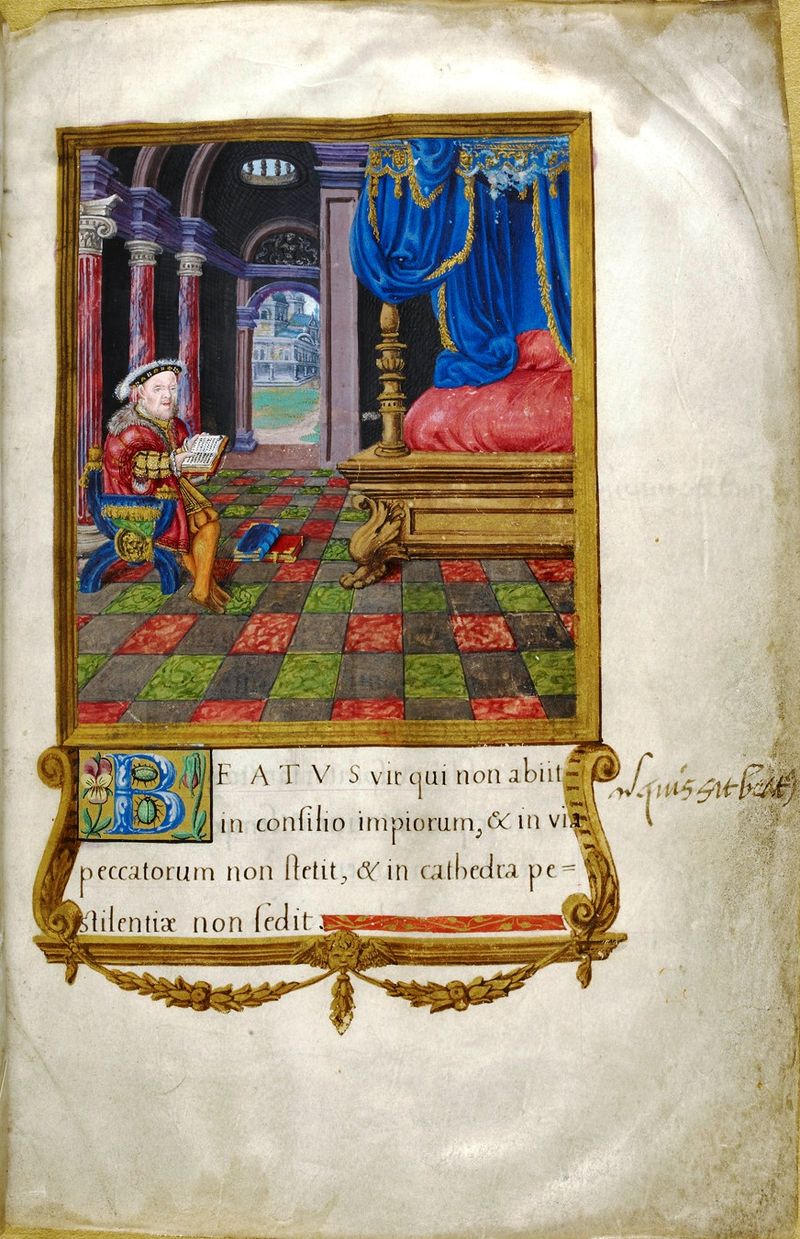 BEATVS vir qui non abiit
in conſilio impiorum, & in via
peccatorum non ſtetit, & in cathedra pe=
ſtilentiæ non ſedit.
quis sit beat9